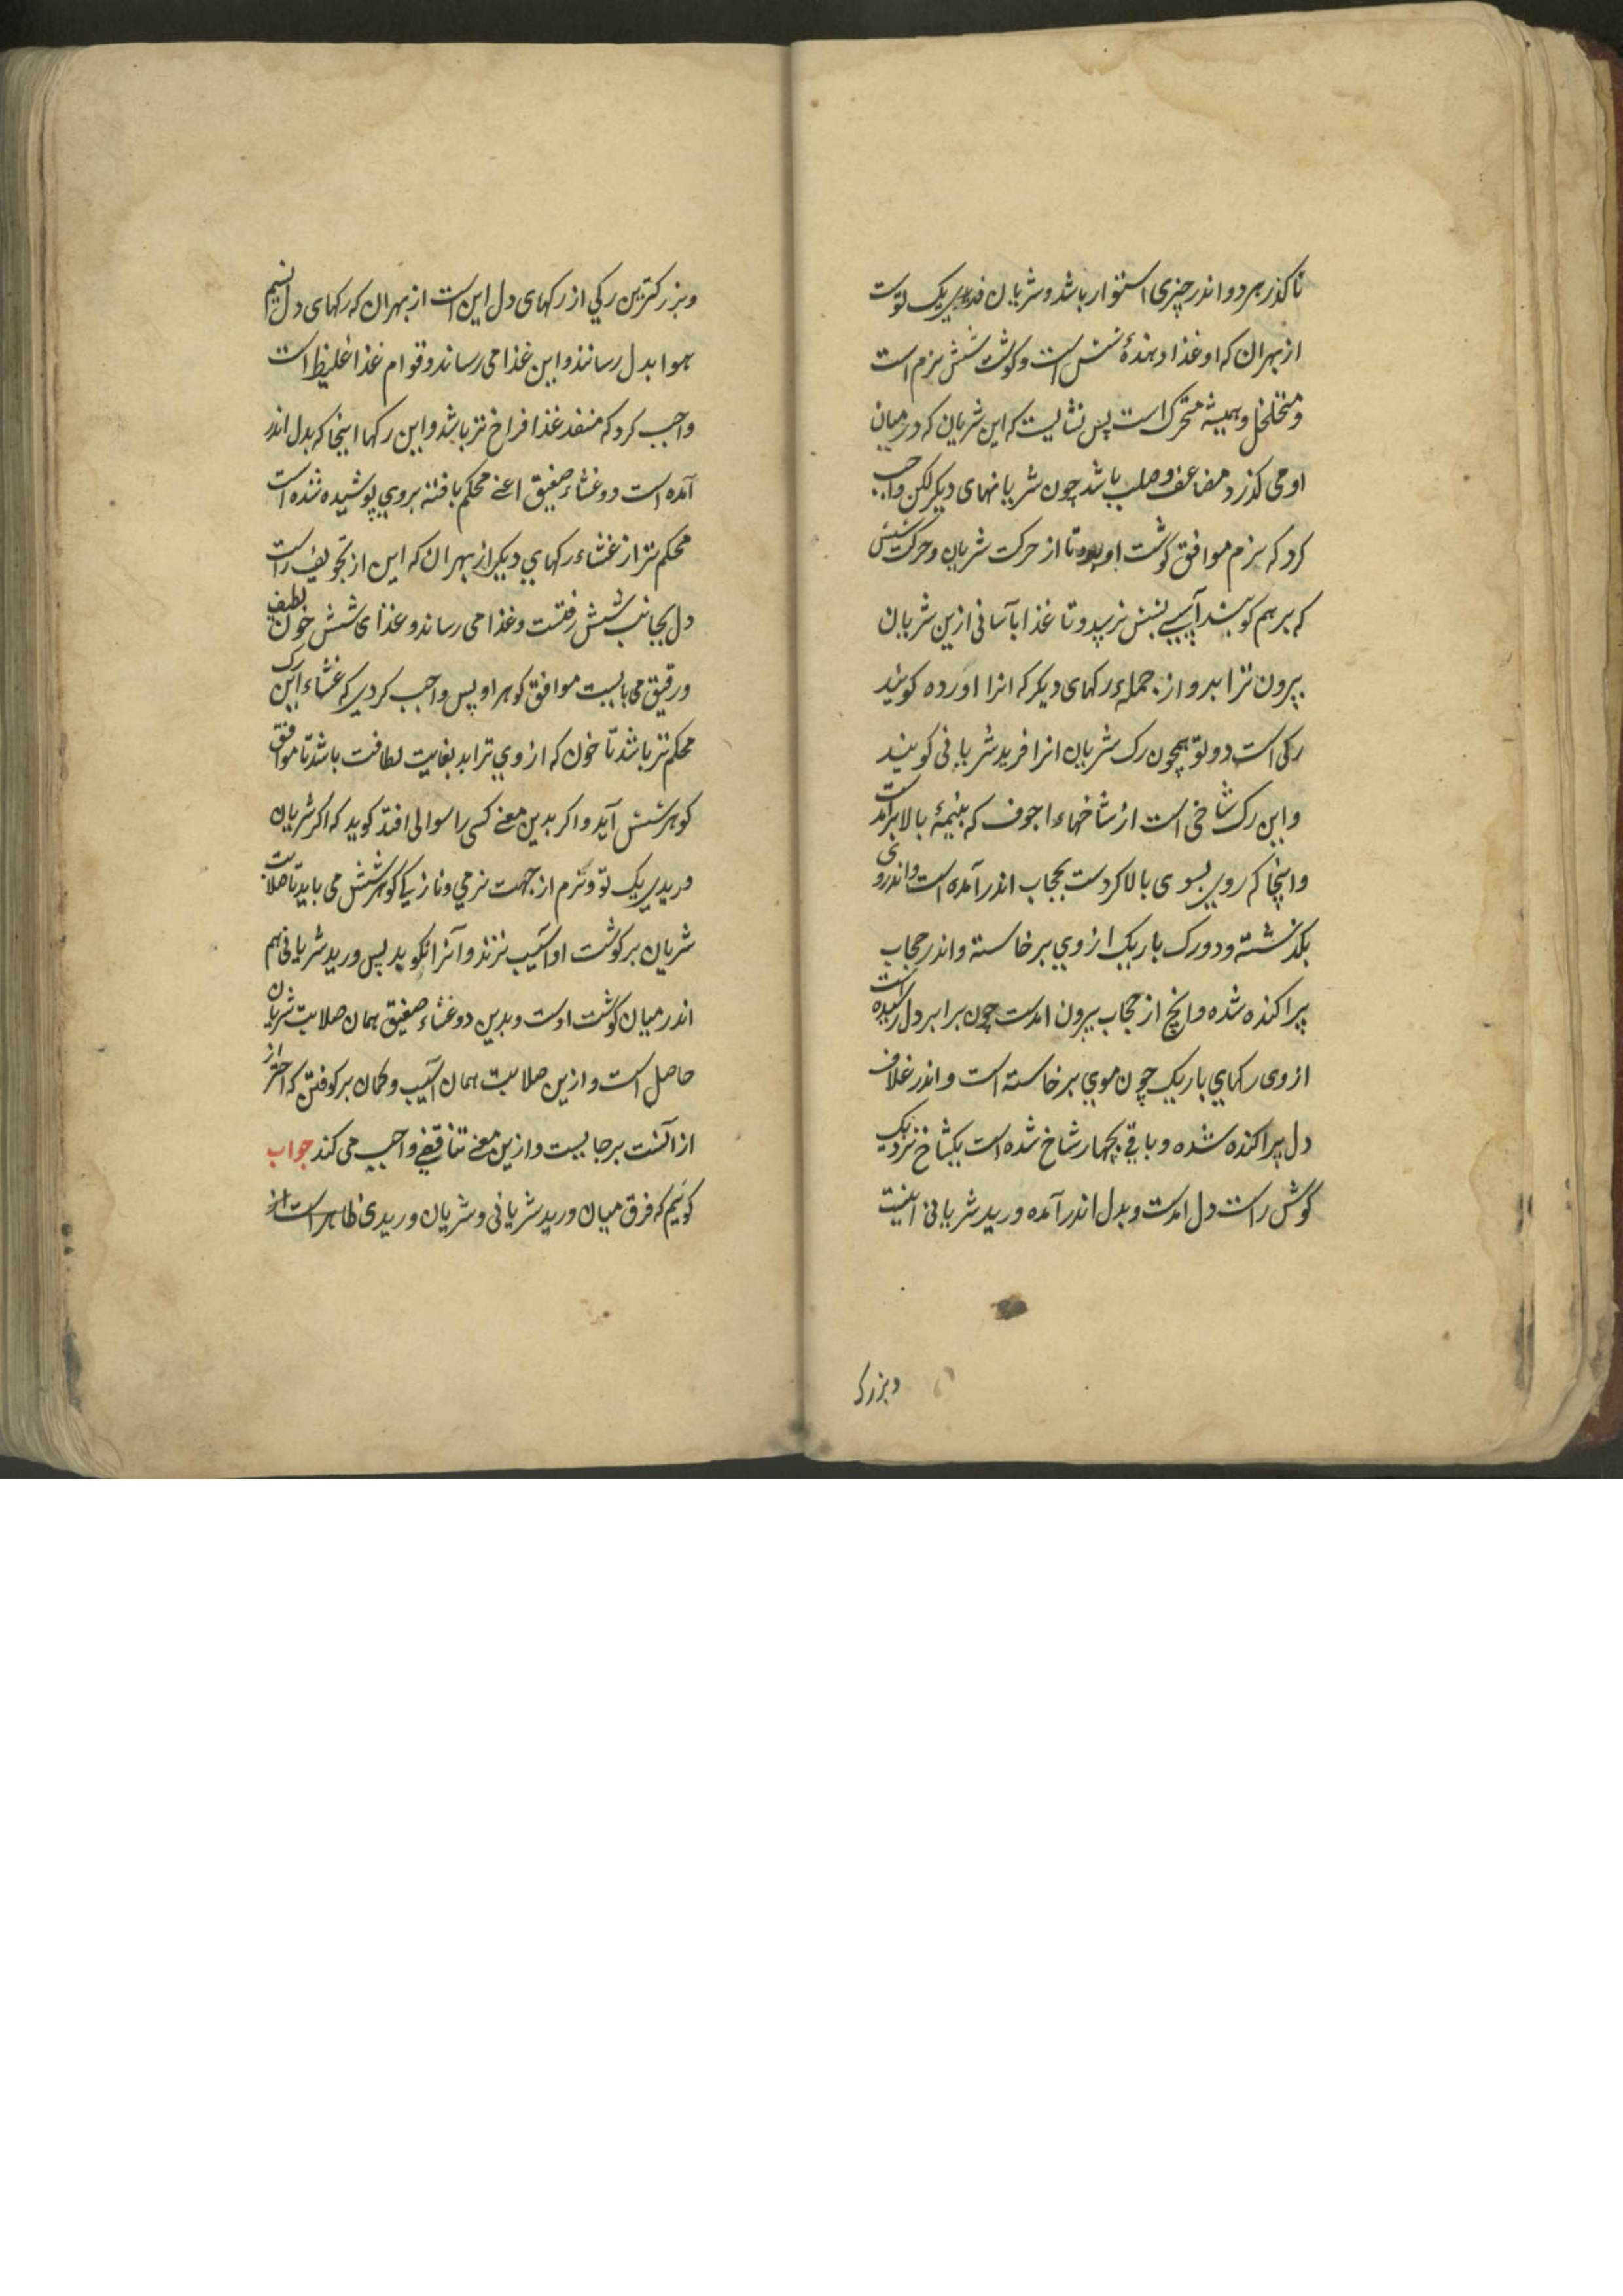 تا کذر هر دو اندر چیزی استوار باشد و شریان وریدی یک توست
از بهر ان که او غذا دهندهٔ شش است و کوشت شش نرم است
و متخلخل و همیشه متحرک است پس نشایست که این شریان که در میان
او می کذرد مضاعف و صلب باشد چون شریانهای دیکر لکن واجب
کرد که نرم موافق کوشت او بود تا از حرکت شریان و حرکت شش
که بر هم کوبند آسیبی بشش نرسد و تا غذا بآسانی ازین شریان
بیرون ترابد و از جملهء رکهای دیکر که انرا اورده کویند
رکی است دو تو همچون رک شریان انرا ورید شریانی کویند
و این رک شاخی است از شاخهاء اجوف که بنیمهٔ بالا برآمدست
و انجا که روی بسوی بالا کردست بحجاب اندر آمده است و اندر وی
بکذشته و دو رک باریک از وی برخاسته و اندر حجاب
پراکنده شده و انچ از حجاب بیرون امدست چون برابر دل رسیده است
از وی رکهای باریک چون موی برخاسته است و اندر غلاف
دل پراکنده شده و باقی بچهار شاخ شده است یکشاخ نزدیک
کوش راست دل امدست و بدل اندر آمده ورید شریانی اینست
و بزرک
و بزرکترین رکی از رکهای دل این است از بهر ان که رکهای دل نسیم
هوا بدل رسانند و این غذا می رساند و قوام غذا غلیظ است
واجب کرد که منفذ غذا فراخ تر باشد و این رکها اینجا که بدل اندر
آمده است دو غشاء صفیق اعنی محکم بافته بروی پوشیده شده است
محکم تر از غشاء رکهای دیکر از بهر ان که این از تجویف راست
دل بجانب شش رفتست و غذا می رساند و غذای شش خون لطیف
و رقیق می بایست موافق کوهر او پس واجب کردی که غشاء این رک
محکم تر باشد تا خون که از وی ترابد بغایت لطافت باشد تا موافق
کوهر شش آید و اکر بدین معنی کسی را سوالی افتد کوید که اکر شریان
وریدی یک تو و نرم از جهت نرمی و نازکی کوهر شش می باید تا صلابت
شریان بر کوشت او آسیب نزند و آنرا نکوبد پس ورید شریانی هم
اندر میان کوشت اوست و بدین دو غشاء صفیق همان صلابت شریان
حاصل است و ازین صلابت همان آسیب و کمان بر کوفتن که احتراز
از آنست بر جاییست و ازین معنی تناقضی واجب می کند جواب
کوییم که فرق میان ورید شریانی و شریان وریدی ظاهر است از